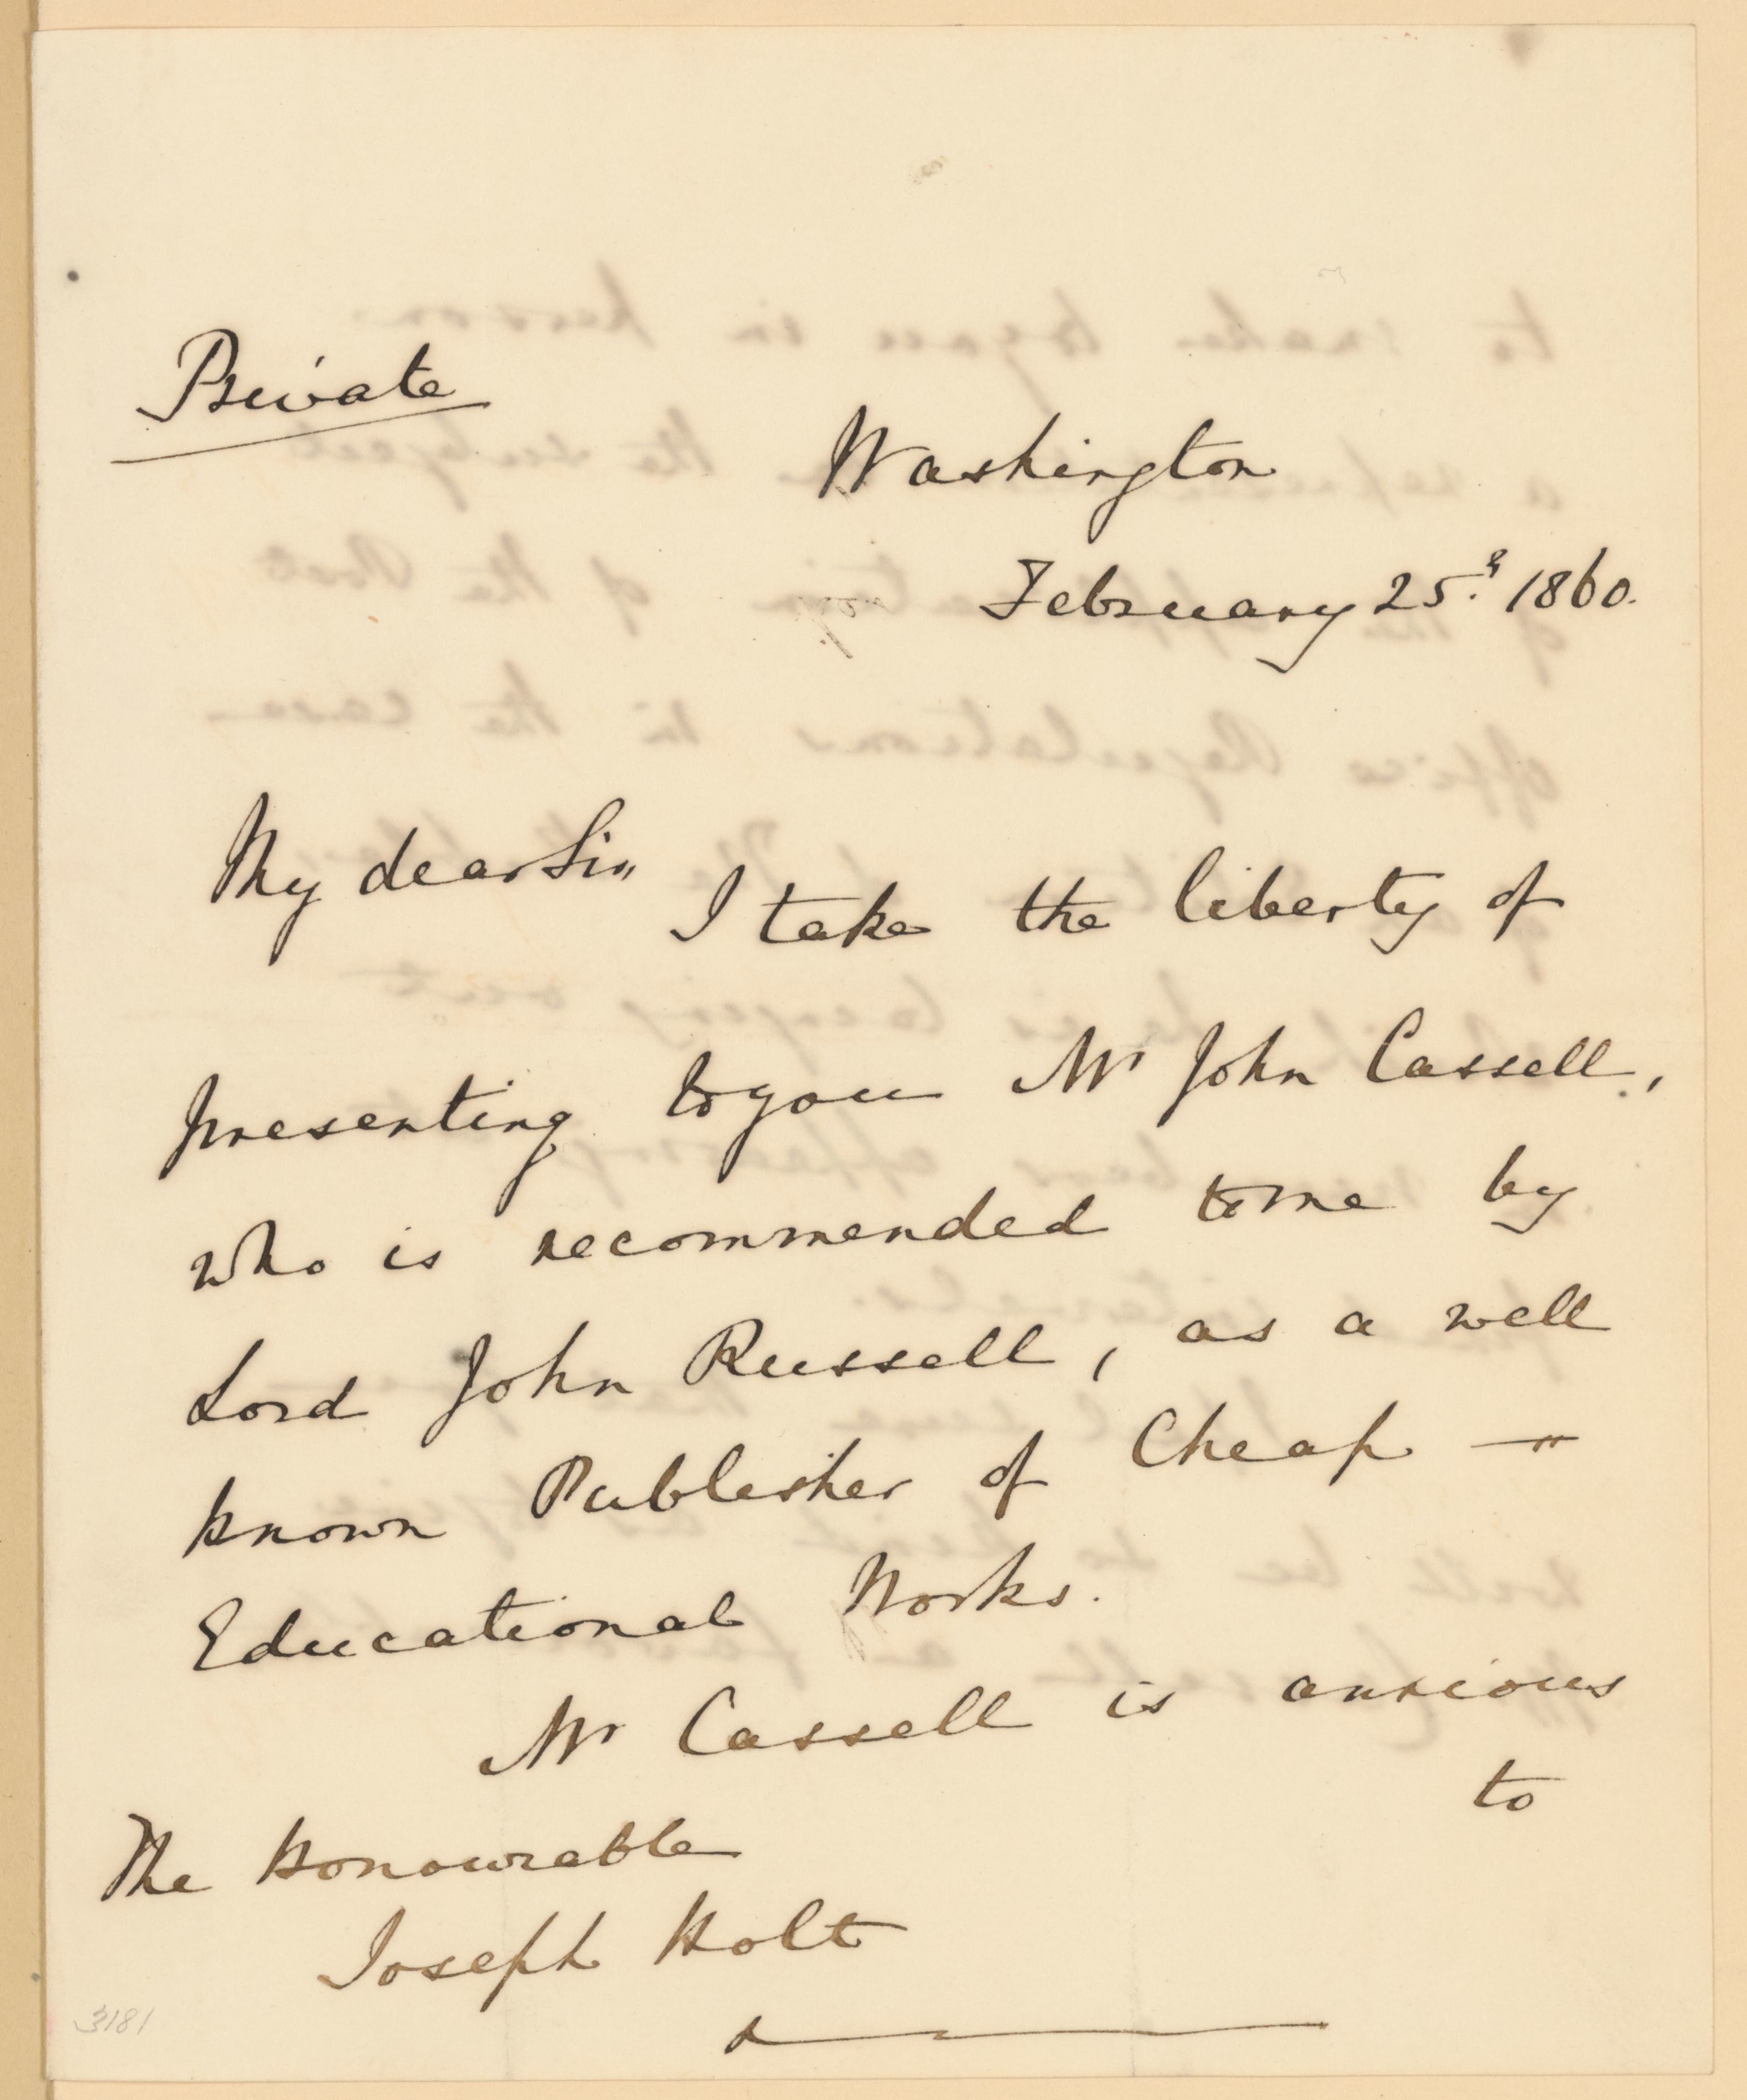 Private
Washington
February 25. 1860.
My dear Sir,
I take the liberty of
presenting to you Mr John Cassell,
who is recommended to me by
Lord John Russell, as a well
known Publisher of Cheap —
Educational Works.
Mr Cassell is anxious
to
The Honourable
Joseph Holt
3181